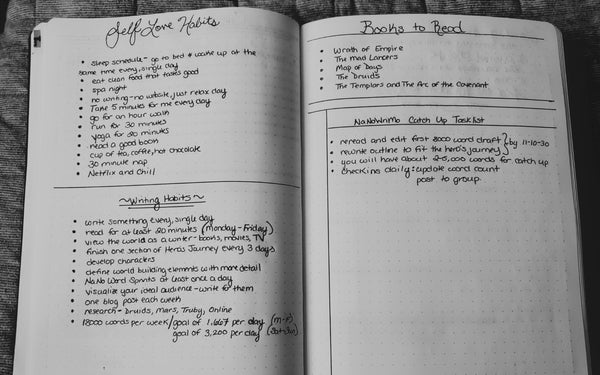 Self Love Habits
• sleep schedule - go to bed & wake up at the
same time every, single day
• eat clean food that tastes good
• spa night
• no writing - no website, just relax day
• Take 5 minutes for me every day
• go for an hour walk
• run for 30 minutes
• yoga for 20 minutes
• read a good book
• cup of tea, coffee, hot chocolate
• 30 minute nap
• Netflix and Chill
~Writing Habits~
• write something every, single day
• read for at least 20 minutes (Monday-Friday)
• view the world as a writer - books, movies, TV
• finish one section of Hero's Journey every 3 days
• develop characters
• define world building elements with more detail
• NaNo Word Sprints at least once a day
• visualize your ideal audience - write for them
• one blog post each week
• research - Druids, Mars, Truby, Online
• 18000 words per week/goal of 1,667 per day (m-F)
goal of 3,200 per day (Sat-Sun)
Books to Read
• Wrath of Empire
• The Mad Lancers
• Map of Days
• The Druids
• The Templars and The Arc of the Covenant
NaNoWriMo Catch Up Tasklist
• reread and edit first 8000 word draft } by 11-10-30
• rewrite outline to fit the hero's journey
• you will have about words for catch up
• checking daily: update word count
post to group